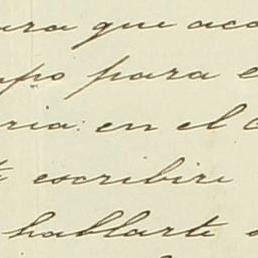 ura que aca
mpo para e
ria: en el c
te escribire
hablarte s